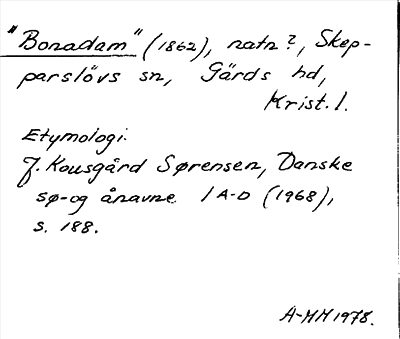 "Bonadam" (1862), natn?, Skep-
parslövs sn, Gärds hd,
Krist. l.
Etymologi:
J. Kousgård Sørensen, Danske
sø- og ånavne 1 A-D (1968),
s. 188.
A-MH 1978.